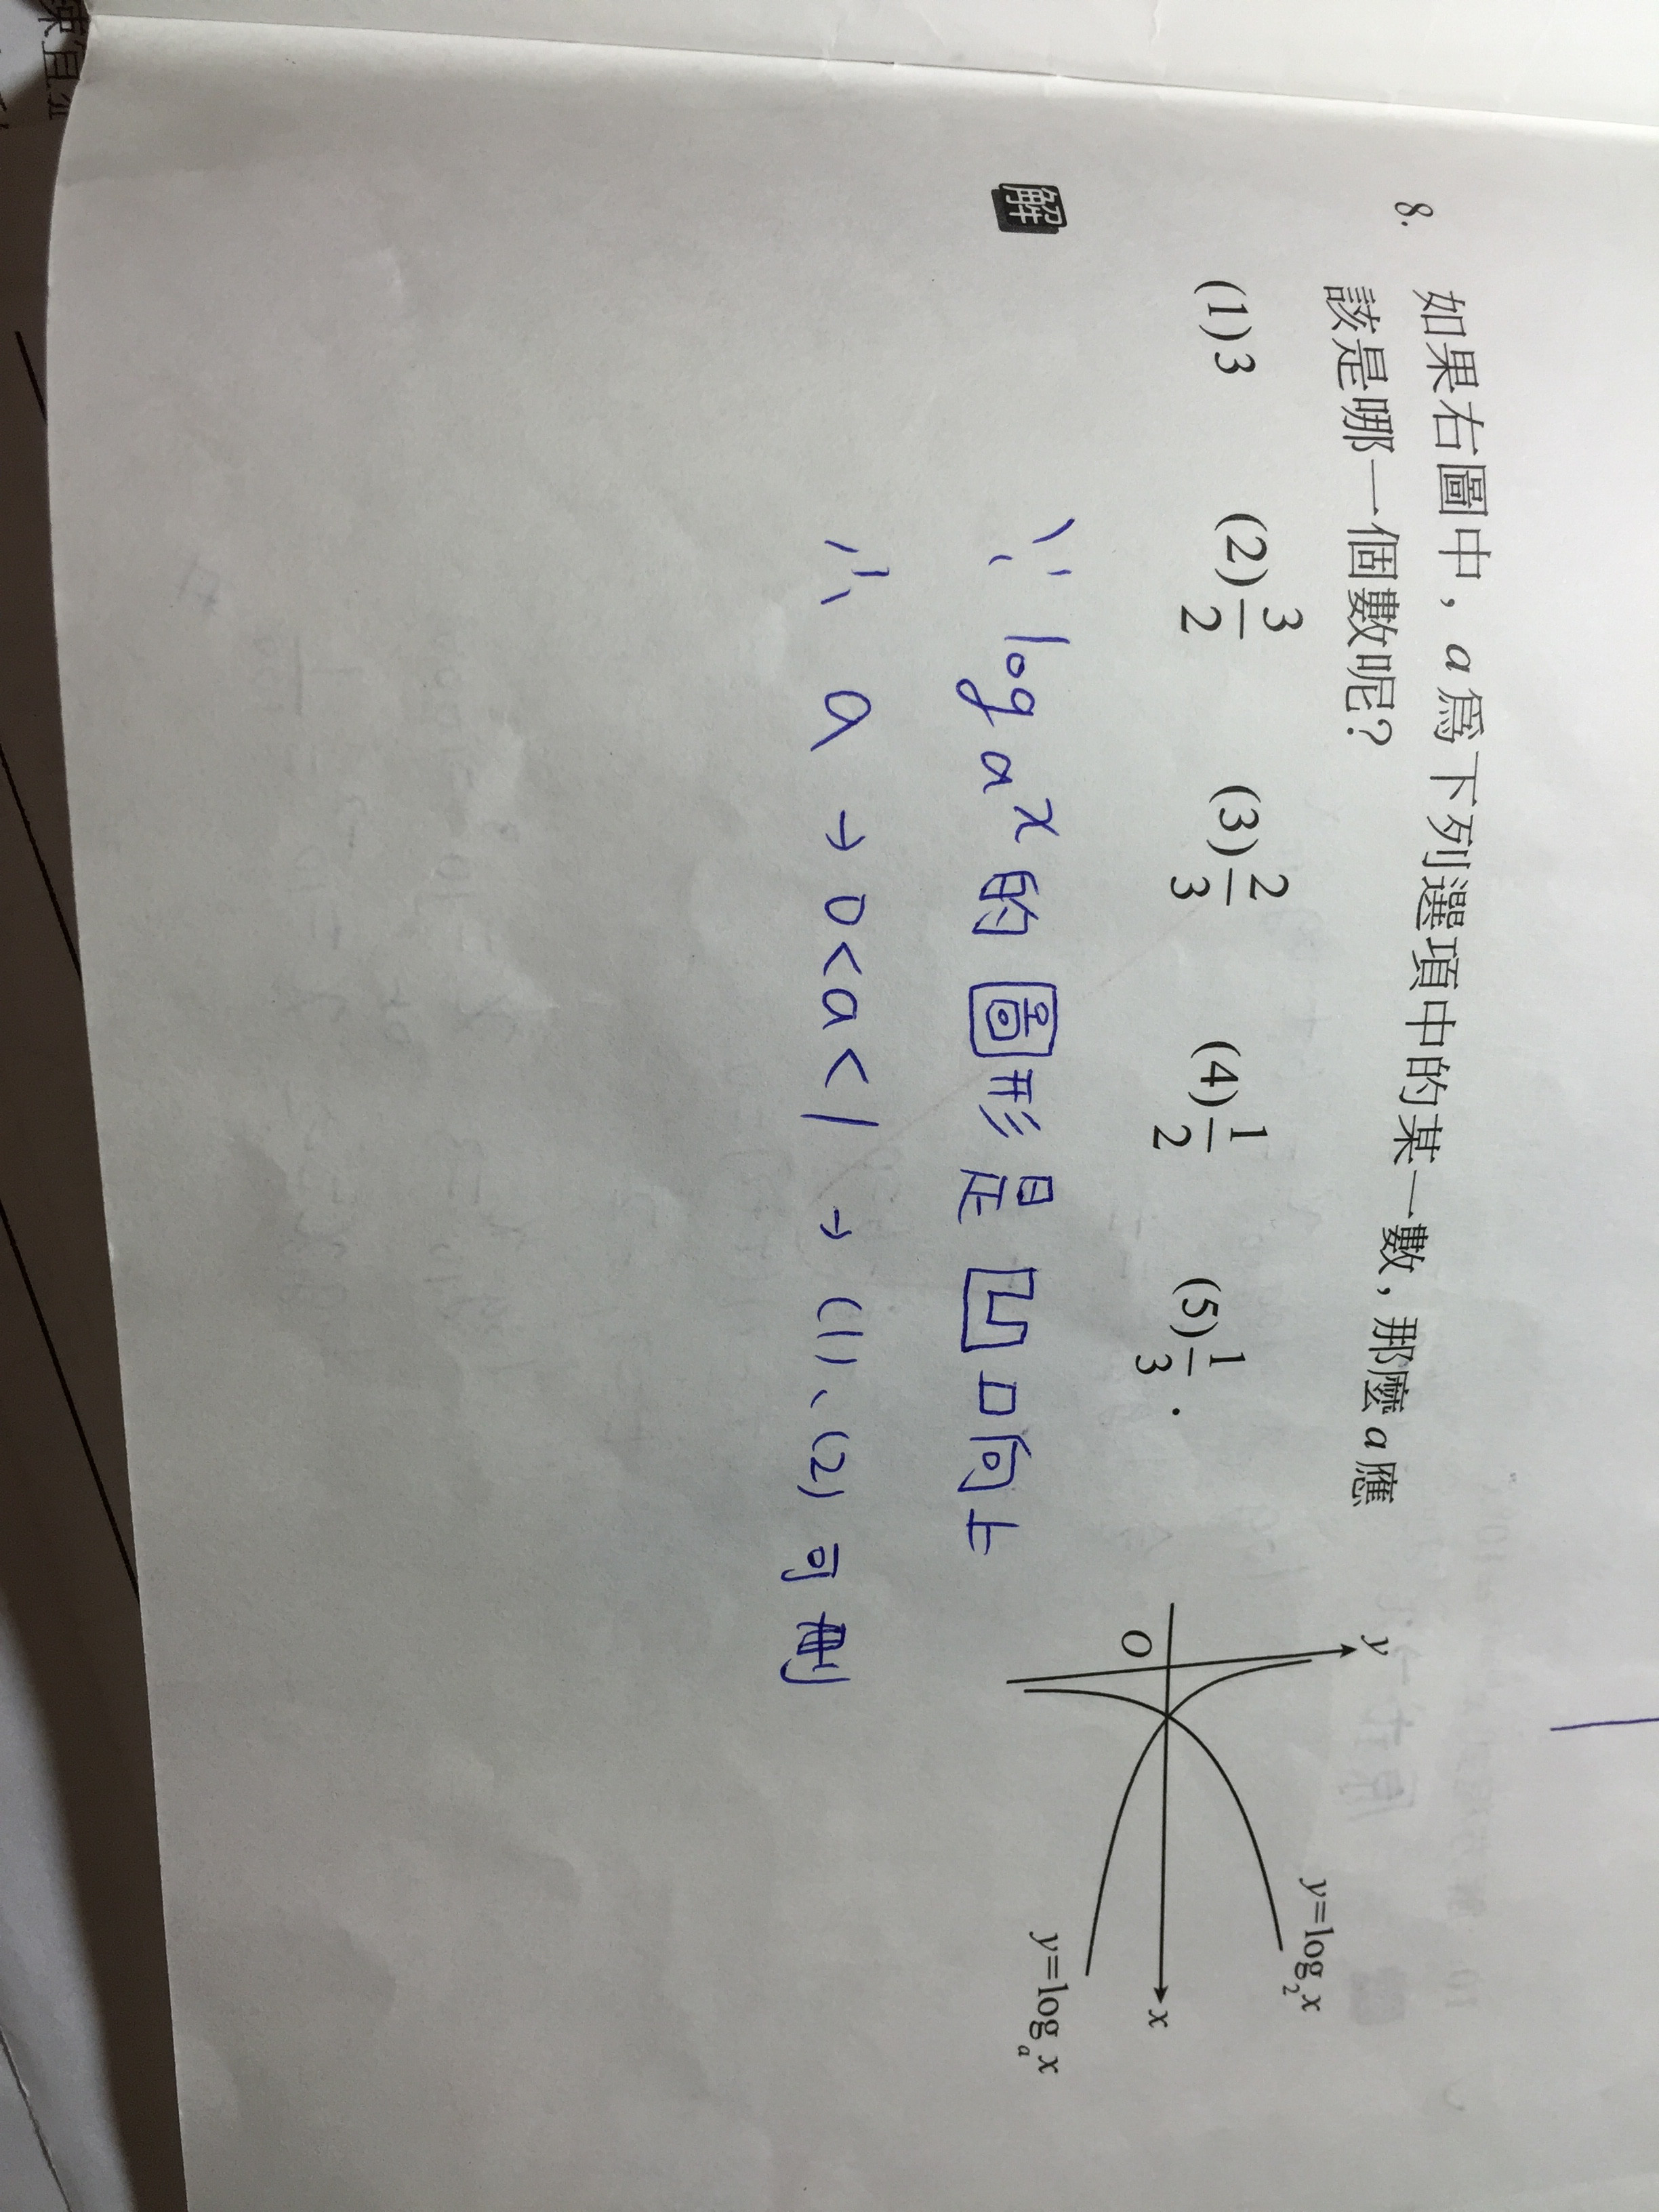 8. 如果右圖中，a 爲下列選項中的某一數，那麼 a 應
該是哪一個數呢？
(1)3 (2)3/2 (3)2/3 (4)1/2 (5)1/3．
y
O
x
y=log₂x
y=logₐx
解
∵ logₐx 的圖形是凹口向上
∴ a → 0<a<1 → (1)、(2) 可刪